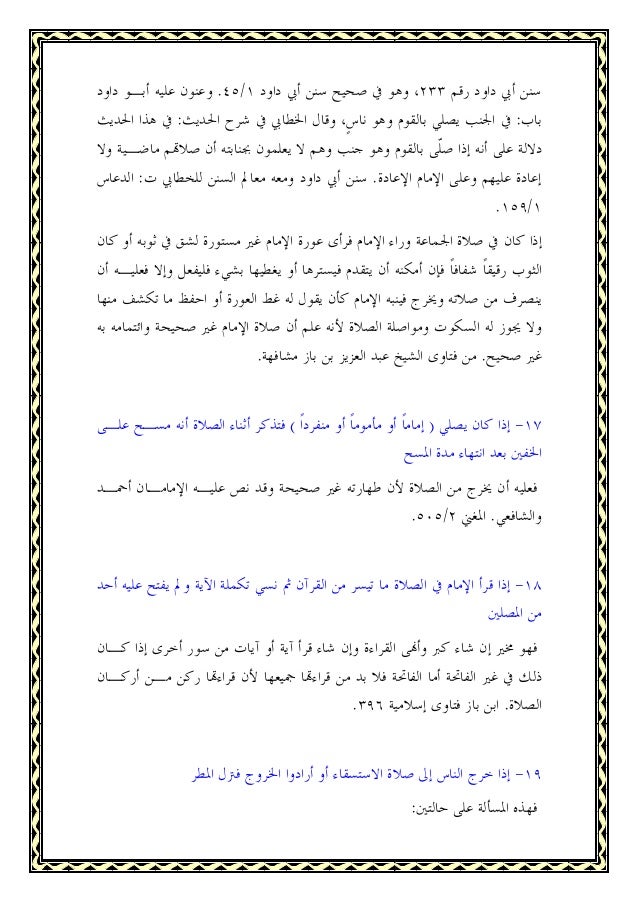 سنن أبي داود رقم ٢٣٣، وهو في صحيح سنن أبي داود ٤٥/١. وعنون عليه أبـو داود
باب: في الجنب يصلي بالقوم وهو ناسٍ، وقال الخطابي في شرح الحديث: في هذا الحديث
دلالة على أنه إذا صلّى بالقوم وهو جنب وهم لا يعلمون بجنابته أن صلاتهم ماضـية ولا
إعادة عليهم وعلى الإمام الإعادة. سنن أبي داود ومعه معالم السنن للخطابي ت: الدعاس
١٥٩/١.
إذا كان في صلاة الجماعة وراء الإمام فرأى عورة الإمام غير مستورة لشق في ثوبه أو كان
الثوب رقيقاً شفافاً فإن أمكنه أن يتقدم فيسترها أو يغطيها بشيء فليفعل وإلا فعليـه أن
ينصرف من صلاته ويخرج فينبه الإمام كأن يقول له غط العورة أو احفظ ما تكشف منها
ولا يجوز له السكوت ومواصلة الصلاة لأنه علم أن صلاة الإمام غير صحيحة وائتمامه به
غير صحيح. من فتاوى الشيخ عبد العزيز بن باز مشافهة.
١٧- إذا كان يصلي ( إماماً أو مأموماً أو منفرداً ) فتذكر أثناء الصلاة أنه مسـح علـى
الخفين بعد انتهاء مدة المسح
فعليه أن يخرج من الصلاة لأن طهارته غير صحيحة وقد نص عليـه الإمامـان أحمـد
والشافعي. المغني ٥٠٥/٢.
١٨- إذا قرأ الإمام في الصلاة ما تيسر من القرآن ثم نسي تكملة الآية ولم يفتح عليه أحد
من المصلين
فهو مخير إن شاء كبر وأنهى القراءة وإن شاء قرأ آية أو آيات من سور أخرى إذا كـان
ذلك في غير الفاتحة أما الفاتحة فلا بد من قراءتها جميعها لأن قراءتها ركن مـن أركـان
الصلاة. ابن باز فتاوى إسلامية ٣٩٦.
١٩- إذا خرج الناس إلى صلاة الاستسقاء أو أرادوا الخروج فنزل المطر
فهذه المسألة على حالتين: